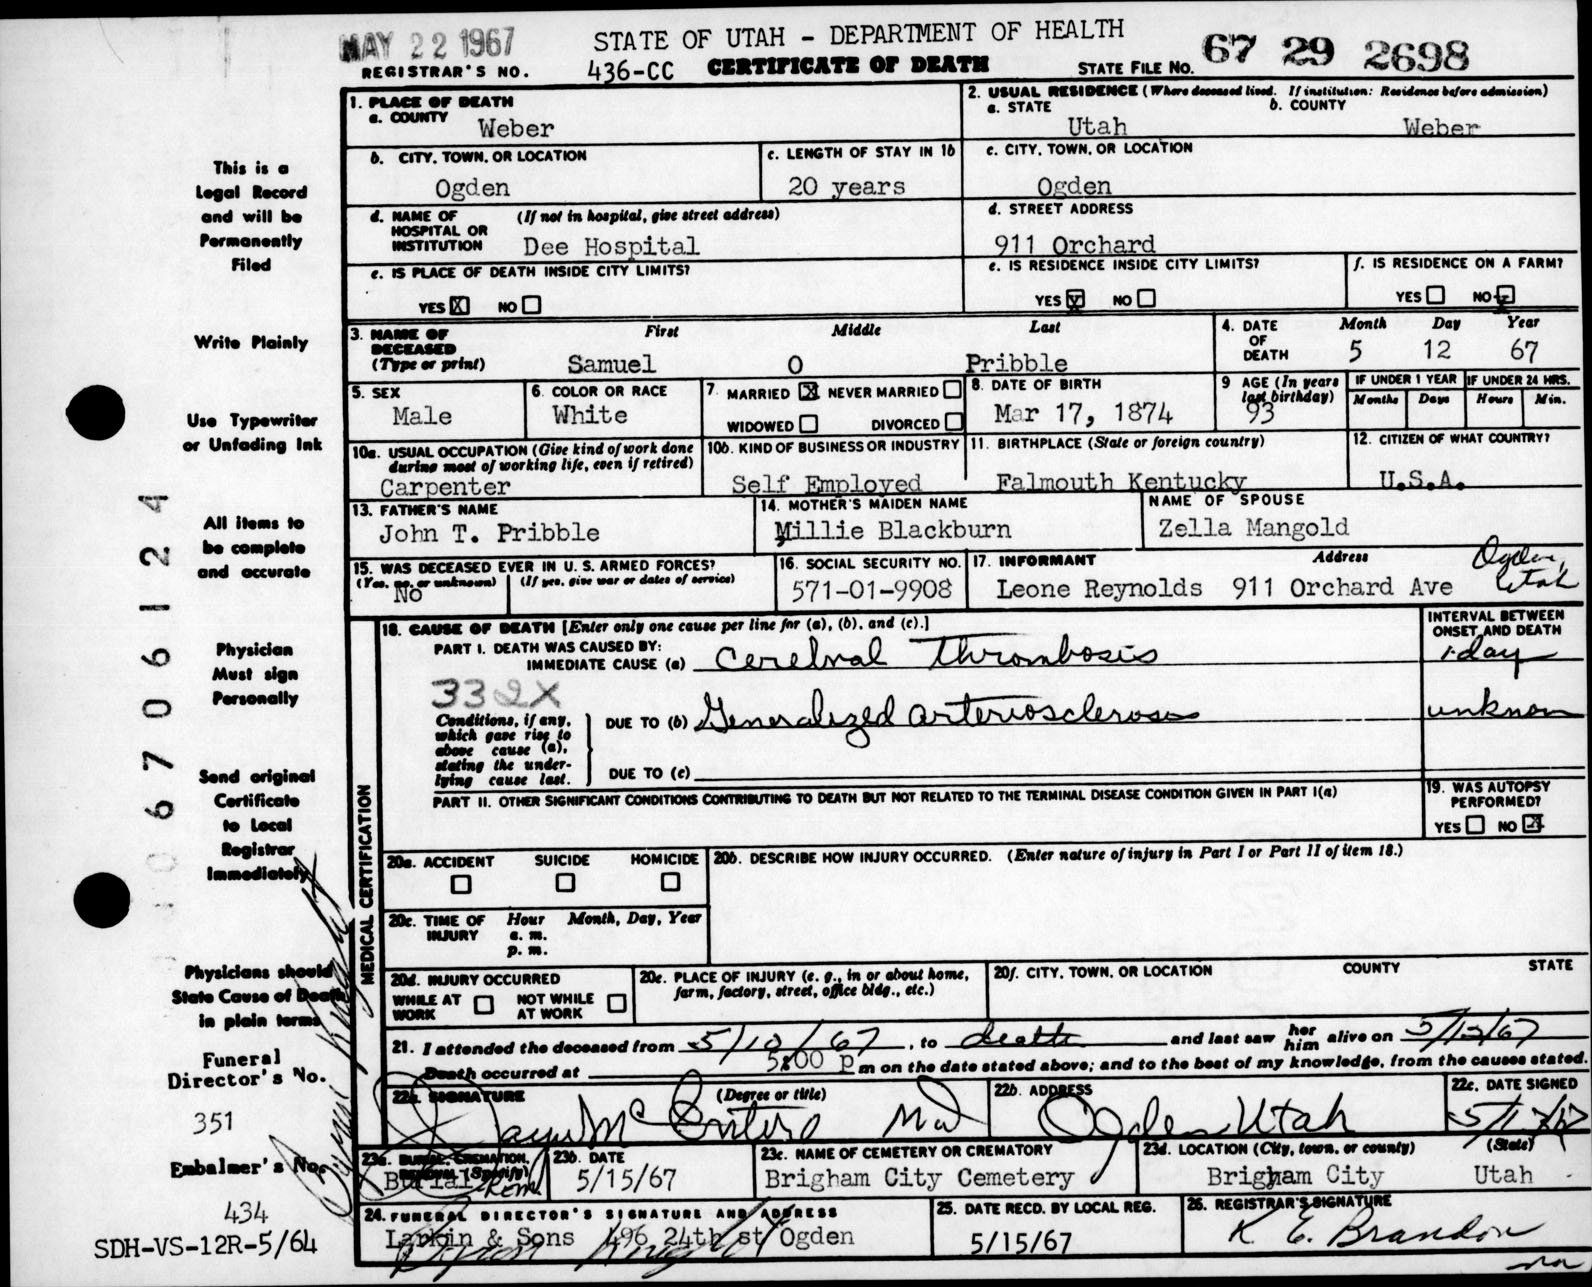 MAY 22 1967
STATE OF UTAH - DEPARTMENT OF HEALTH
REGISTRAR'S NO. 436-CC CERTIFICATE OF DEATH STATE FILE NO. 67 29 2698
1. PLACE OF DEATH
a. COUNTY
Weber
2. USUAL RESIDENCE (Where deceased lived. If institution: Residence before admission)
a. STATE b. COUNTY
Utah Weber
b. CITY, TOWN, OR LOCATION
Ogden
c. LENGTH OF STAY IN 1b
20 years
c. CITY, TOWN, OR LOCATION
Ogden
d. NAME OF HOSPITAL OR INSTITUTION (If not in hospital, give street address)
Dee Hospital
d. STREET ADDRESS
911 Orchard
e. IS PLACE OF DEATH INSIDE CITY LIMITS?
YES X NO
e. IS RESIDENCE INSIDE CITY LIMITS?
YES X NO
f. IS RESIDENCE ON A FARM?
YES NO X
3. NAME OF DECEASED (Type or print)
First Middle Last
Samuel O Pribble
4. DATE OF DEATH
Month Day Year
5 12 67
5. SEX
Male
6. COLOR OR RACE
White
7. MARRIED X NEVER MARRIED
WIDOWED DIVORCED
8. DATE OF BIRTH
Mar 17, 1874
9 AGE (In years last birthday)
93
IF UNDER 1 YEAR IF UNDER 24 HRS.
Months Days Hours Min.
10a. USUAL OCCUPATION (Give kind of work done during most of working life, even if retired)
Carpenter
10b. KIND OF BUSINESS OR INDUSTRY
Self Employed
11. BIRTHPLACE (State or foreign country)
Falmouth Kentucky
12. CITIZEN OF WHAT COUNTRY?
U.S.A.
13. FATHER'S NAME
John T. Pribble
14. MOTHER'S MAIDEN NAME
Millie Blackburn
NAME OF SPOUSE
Zella Mangold
15. WAS DECEASED EVER IN U. S. ARMED FORCES?
(Yes, no, or unknown) (If yes, give war or dates of service)
No
16. SOCIAL SECURITY NO.
571-01-9908
17. INFORMANT Address
Leone Reynolds 911 Orchard Ave Ogden, Utah
MEDICAL CERTIFICATION
18. CAUSE OF DEATH [Enter only one cause per line for (a), (b), and (c).]
INTERVAL BETWEEN ONSET AND DEATH
PART I. DEATH WAS CAUSED BY:
IMMEDIATE CAUSE (a) Cerebral Thrombosis 1 day
332X
Conditions, if any, which gave rise to above cause (a), stating the underlying cause last.
DUE TO (b) Generalized arteriosclerosis unknown
DUE TO (c)
PART II. OTHER SIGNIFICANT CONDITIONS CONTRIBUTING TO DEATH BUT NOT RELATED TO THE TERMINAL DISEASE CONDITION GIVEN IN PART I(a)
19. WAS AUTOPSY PERFORMED?
YES NO X
20a. ACCIDENT SUICIDE HOMICIDE
20b. DESCRIBE HOW INJURY OCCURRED. (Enter nature of injury in Part I or Part II of item 18.)
20c. TIME OF INJURY Hour Month, Day, Year
a. m.
p. m.
20d. INJURY OCCURRED
WHILE AT WORK NOT WHILE AT WORK
20e. PLACE OF INJURY (e. g., in or about home, farm, factory, street, office bldg., etc.)
20f. CITY, TOWN, OR LOCATION COUNTY STATE
21. I attended the deceased from 5/10/67, to death and last saw her him alive on 5/12/67
Death occurred at 5:00 P m on the date stated above; and to the best of my knowledge, from the causes stated.
22a. SIGNATURE (Degree or title)
MD
22b. ADDRESS
Ogden Utah
22c. DATE SIGNED
23a. BURIAL, CREMATION, REMOVAL (Specify)
Burial Rem
23b. DATE
5/15/67
23c. NAME OF CEMETERY OR CREMATORY
Brigham City Cemetery
23d. LOCATION (City, town, or county) (State)
Brigham City Utah
24. FUNERAL DIRECTOR'S SIGNATURE AND ADDRESS
Larkin & Sons 496 24th st Ogden
25. DATE RECD. BY LOCAL REG.
5/15/67
26. REGISTRAR'S SIGNATURE
K E. Brandon
This is a
Legal Record
and will be
Permanently
Filed
Write Plainly
Use Typewriter
or Unfading Ink
All items to
be complete
and accurate
Physician
Must sign
Personally
Send original
Certificate
to Local
Registrar
Immediately
Physicians should
State Cause of Death
in plain terms
Funeral
Director's No.
351
Embalmer's No.
434
SDH-VS-12R-5/64
06706124